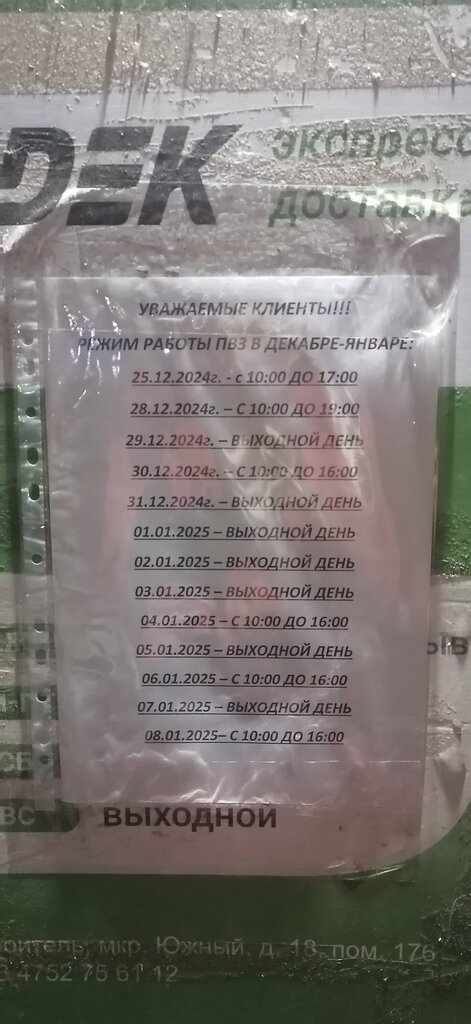 DEK
экспресс
доставка
УВАЖАЕМЫЕ КЛИЕНТЫ!!!
РЕЖИМ РАБОТЫ ПВЗ В ДЕКАБРЕ-ЯНВАРЕ:
25.12.2024г. - с 10:00 ДО 17:00
28.12.2024г. – С 10:00 ДО 19:00
29.12.2024г. – ВЫХОДНОЙ ДЕНЬ
30.12.2024г. – С 10:00 ДО 16:00
31.12.2024г. – ВЫХОДНОЙ ДЕНЬ
01.01.2025 – ВЫХОДНОЙ ДЕНЬ
02.01.2025 – ВЫХОДНОЙ ДЕНЬ
03.01.2025 – ВЫХОДНОЙ ДЕНЬ
04.01.2025 – С 10:00 ДО 16:00
05.01.2025 – ВЫХОДНОЙ ДЕНЬ
06.01.2025 – С 10:00 ДО 16:00
07.01.2025 – ВЫХОДНОЙ ДЕНЬ
08.01.2025– С 10:00 ДО 16:00
ЫВ
СБ
ВС ВЫХОДНОЙ
роитель, мкр. Южный, д. 18, пом. 176
8 4752 75 61 12